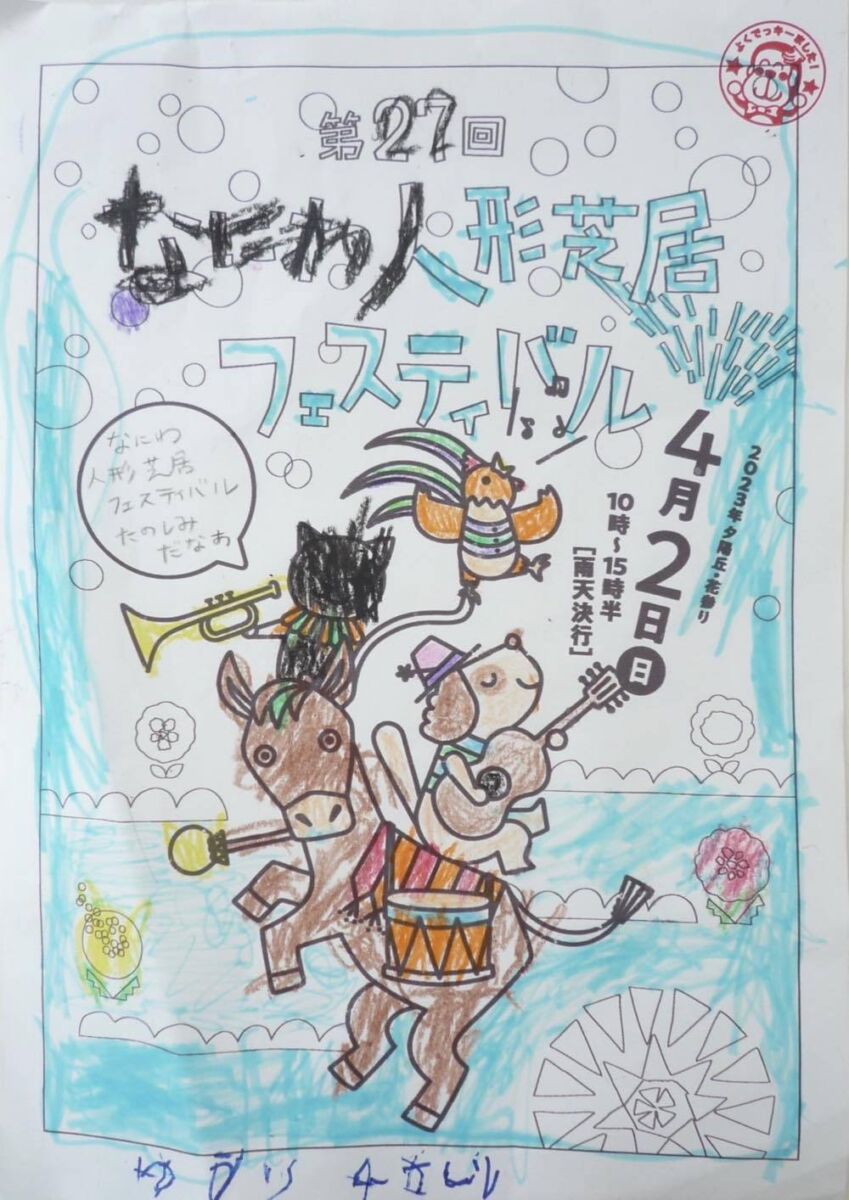 よくでっキーました！
第27回
なにわ人形芝居
フェスティバル
2023年夕陽丘・花参り
4月2日日
10時～15時半
［雨天決行］
なにわ
人形芝居
フェスティバル
たのしみ
だなあ